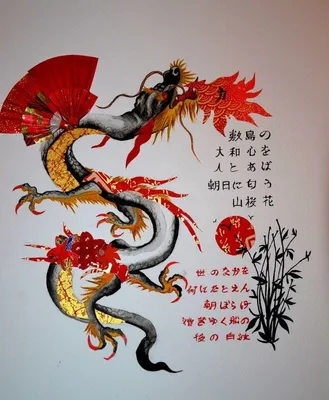 敷島の
大和心を
人とあば
朝日に匂う
山桜花
世のなかを
何にたとえん
朝ぼらけ
漕ぎゆく船の
後の白波